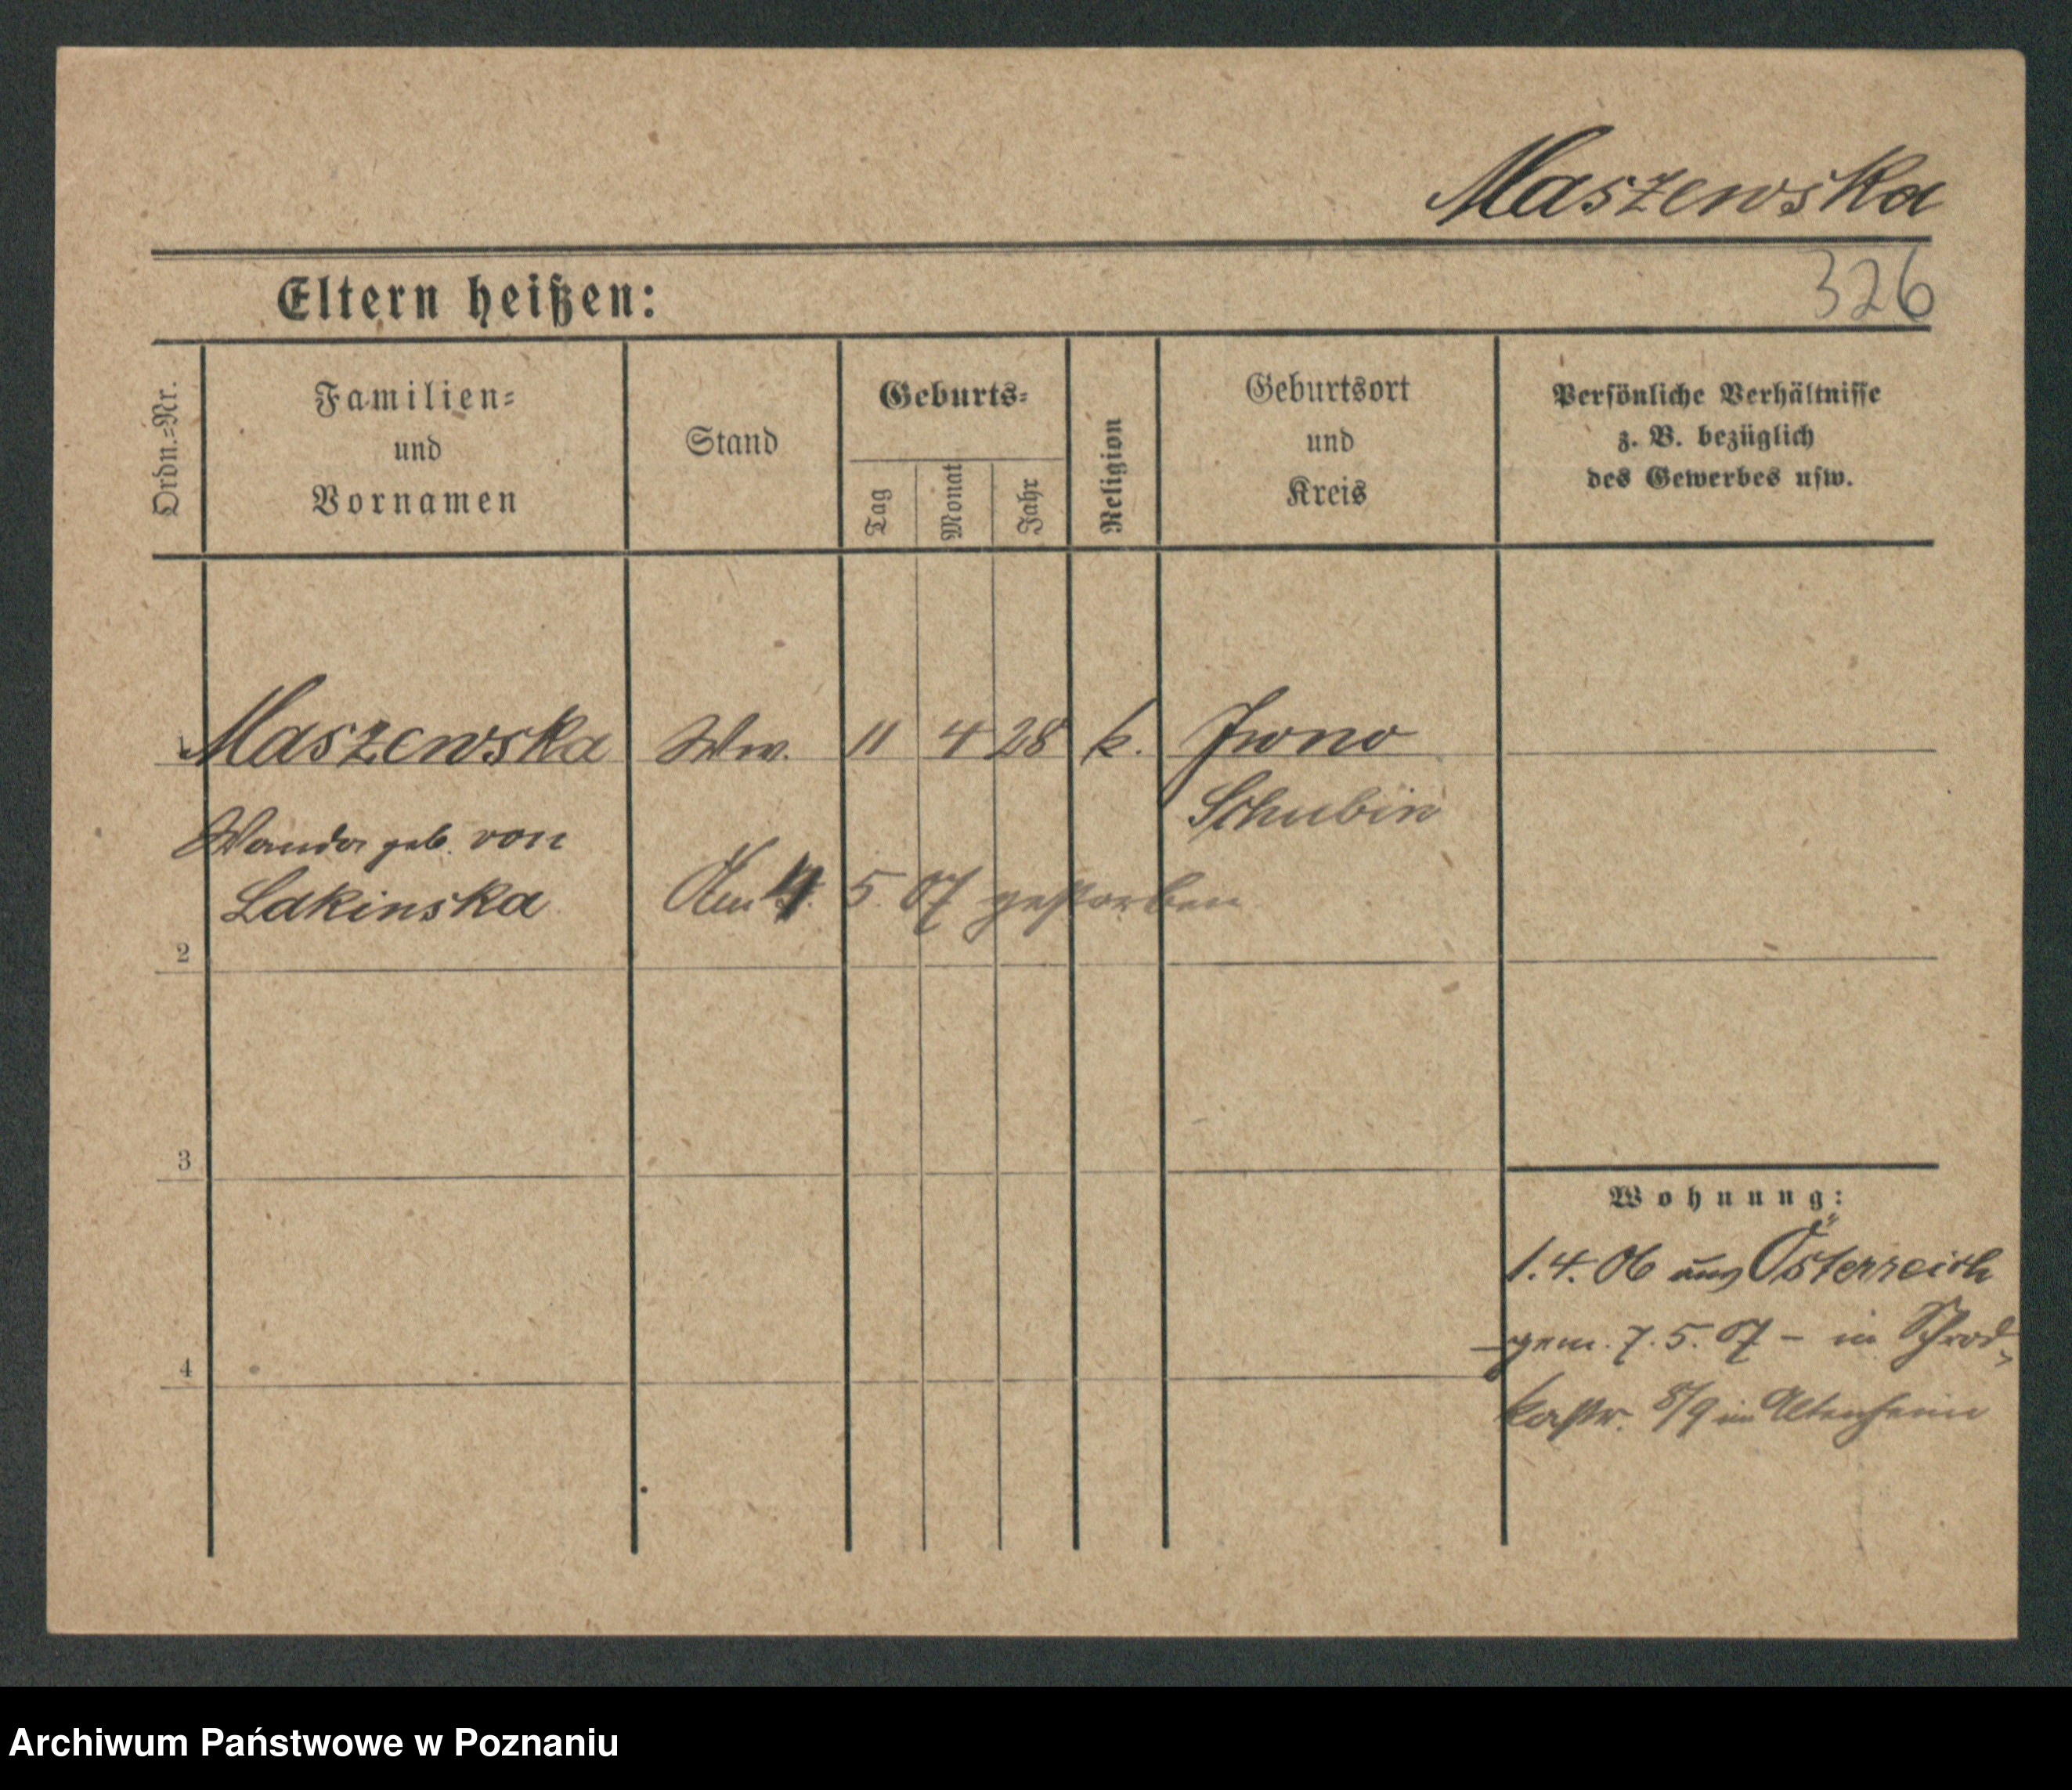 Maszewska
326
Eltern heißen:
Ordn.=Nr.
Familien=
und
Vornamen
Stand
Geburts=
Tag
Monat
Jahr
Religion
Geburtsort
und
Kreis
Persönliche Verhältnisse
z. B. bezüglich
des Gewerbes usw.
1 Maszewska Ww. 11 4 28 k. Iwno
Schubin
Wanda geb. von
Lakinska Am 4. 5. 07 gestorben
2
3
Wohnung:
1. 4. 06 aus Österreich
gem. 7. 5. 07 – in Schrod-
4
kastr. 8/9 im Altenheim
Archiwum Państwowe w Poznaniu